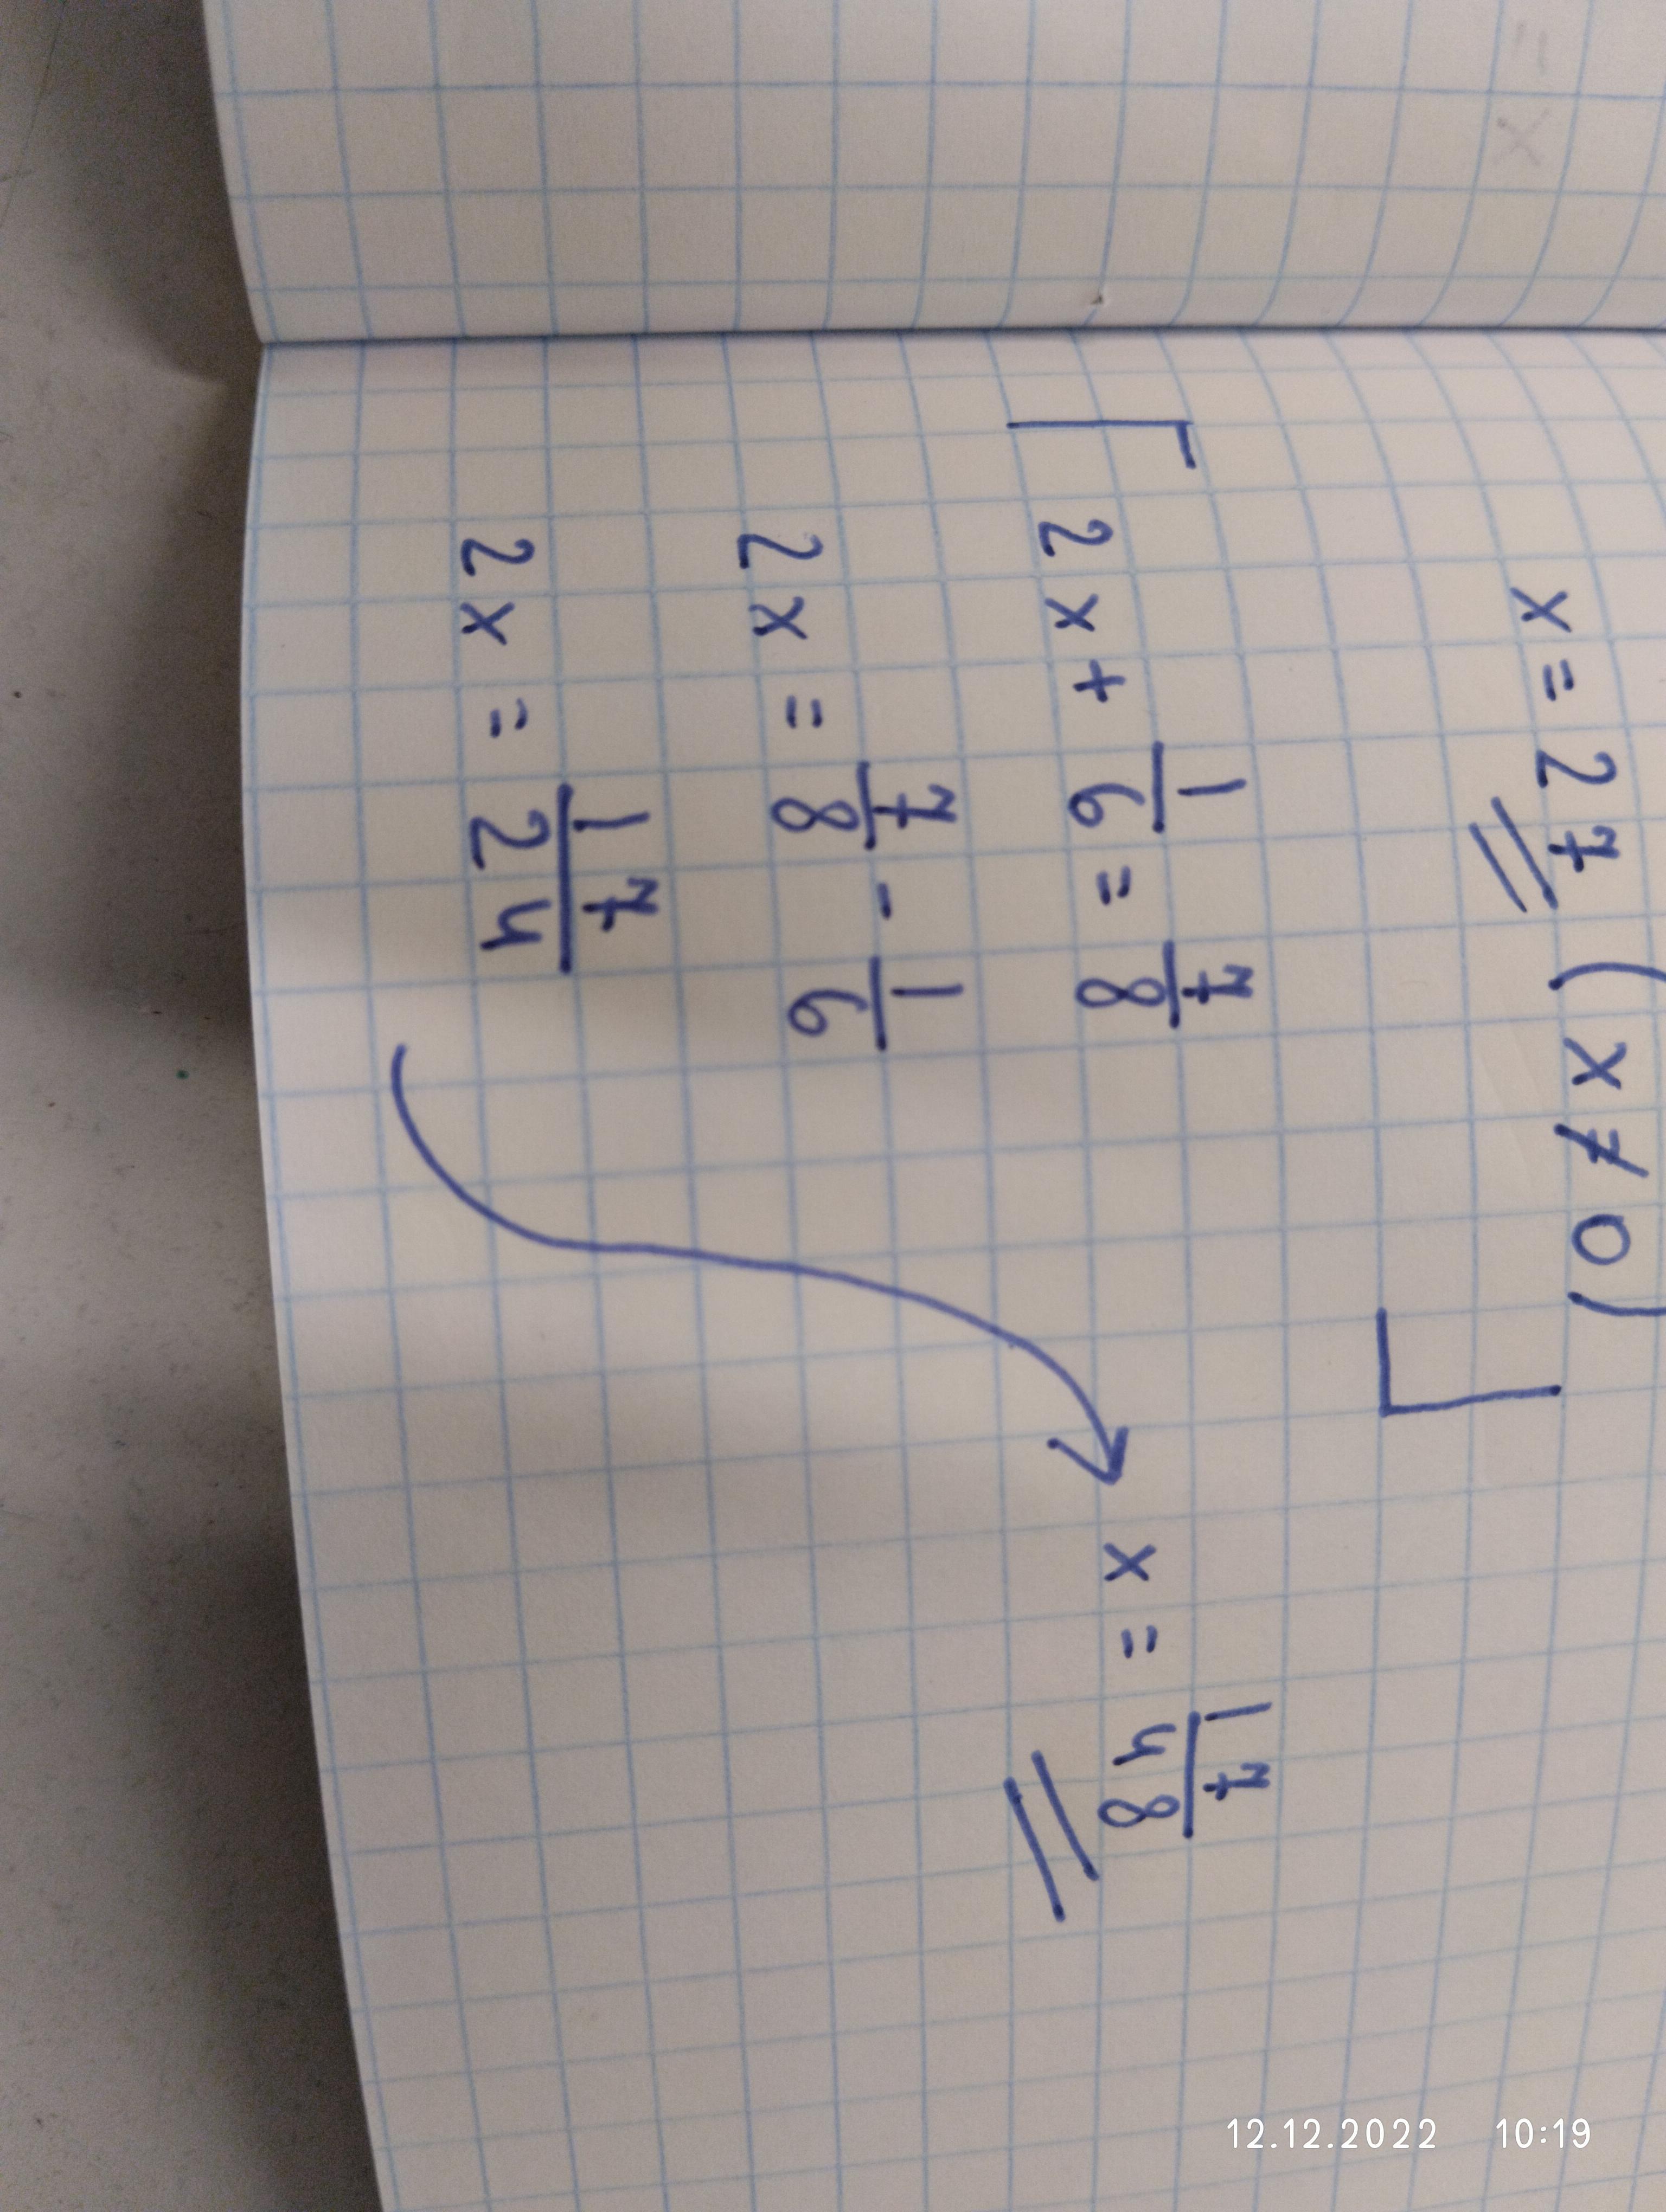 x = 27 (x ≠ 0)
2x + 1/6 = 7/8
2x = 7/8 - 1/6
2x = 17/24
x = 17/48
12.12.2022 10:19